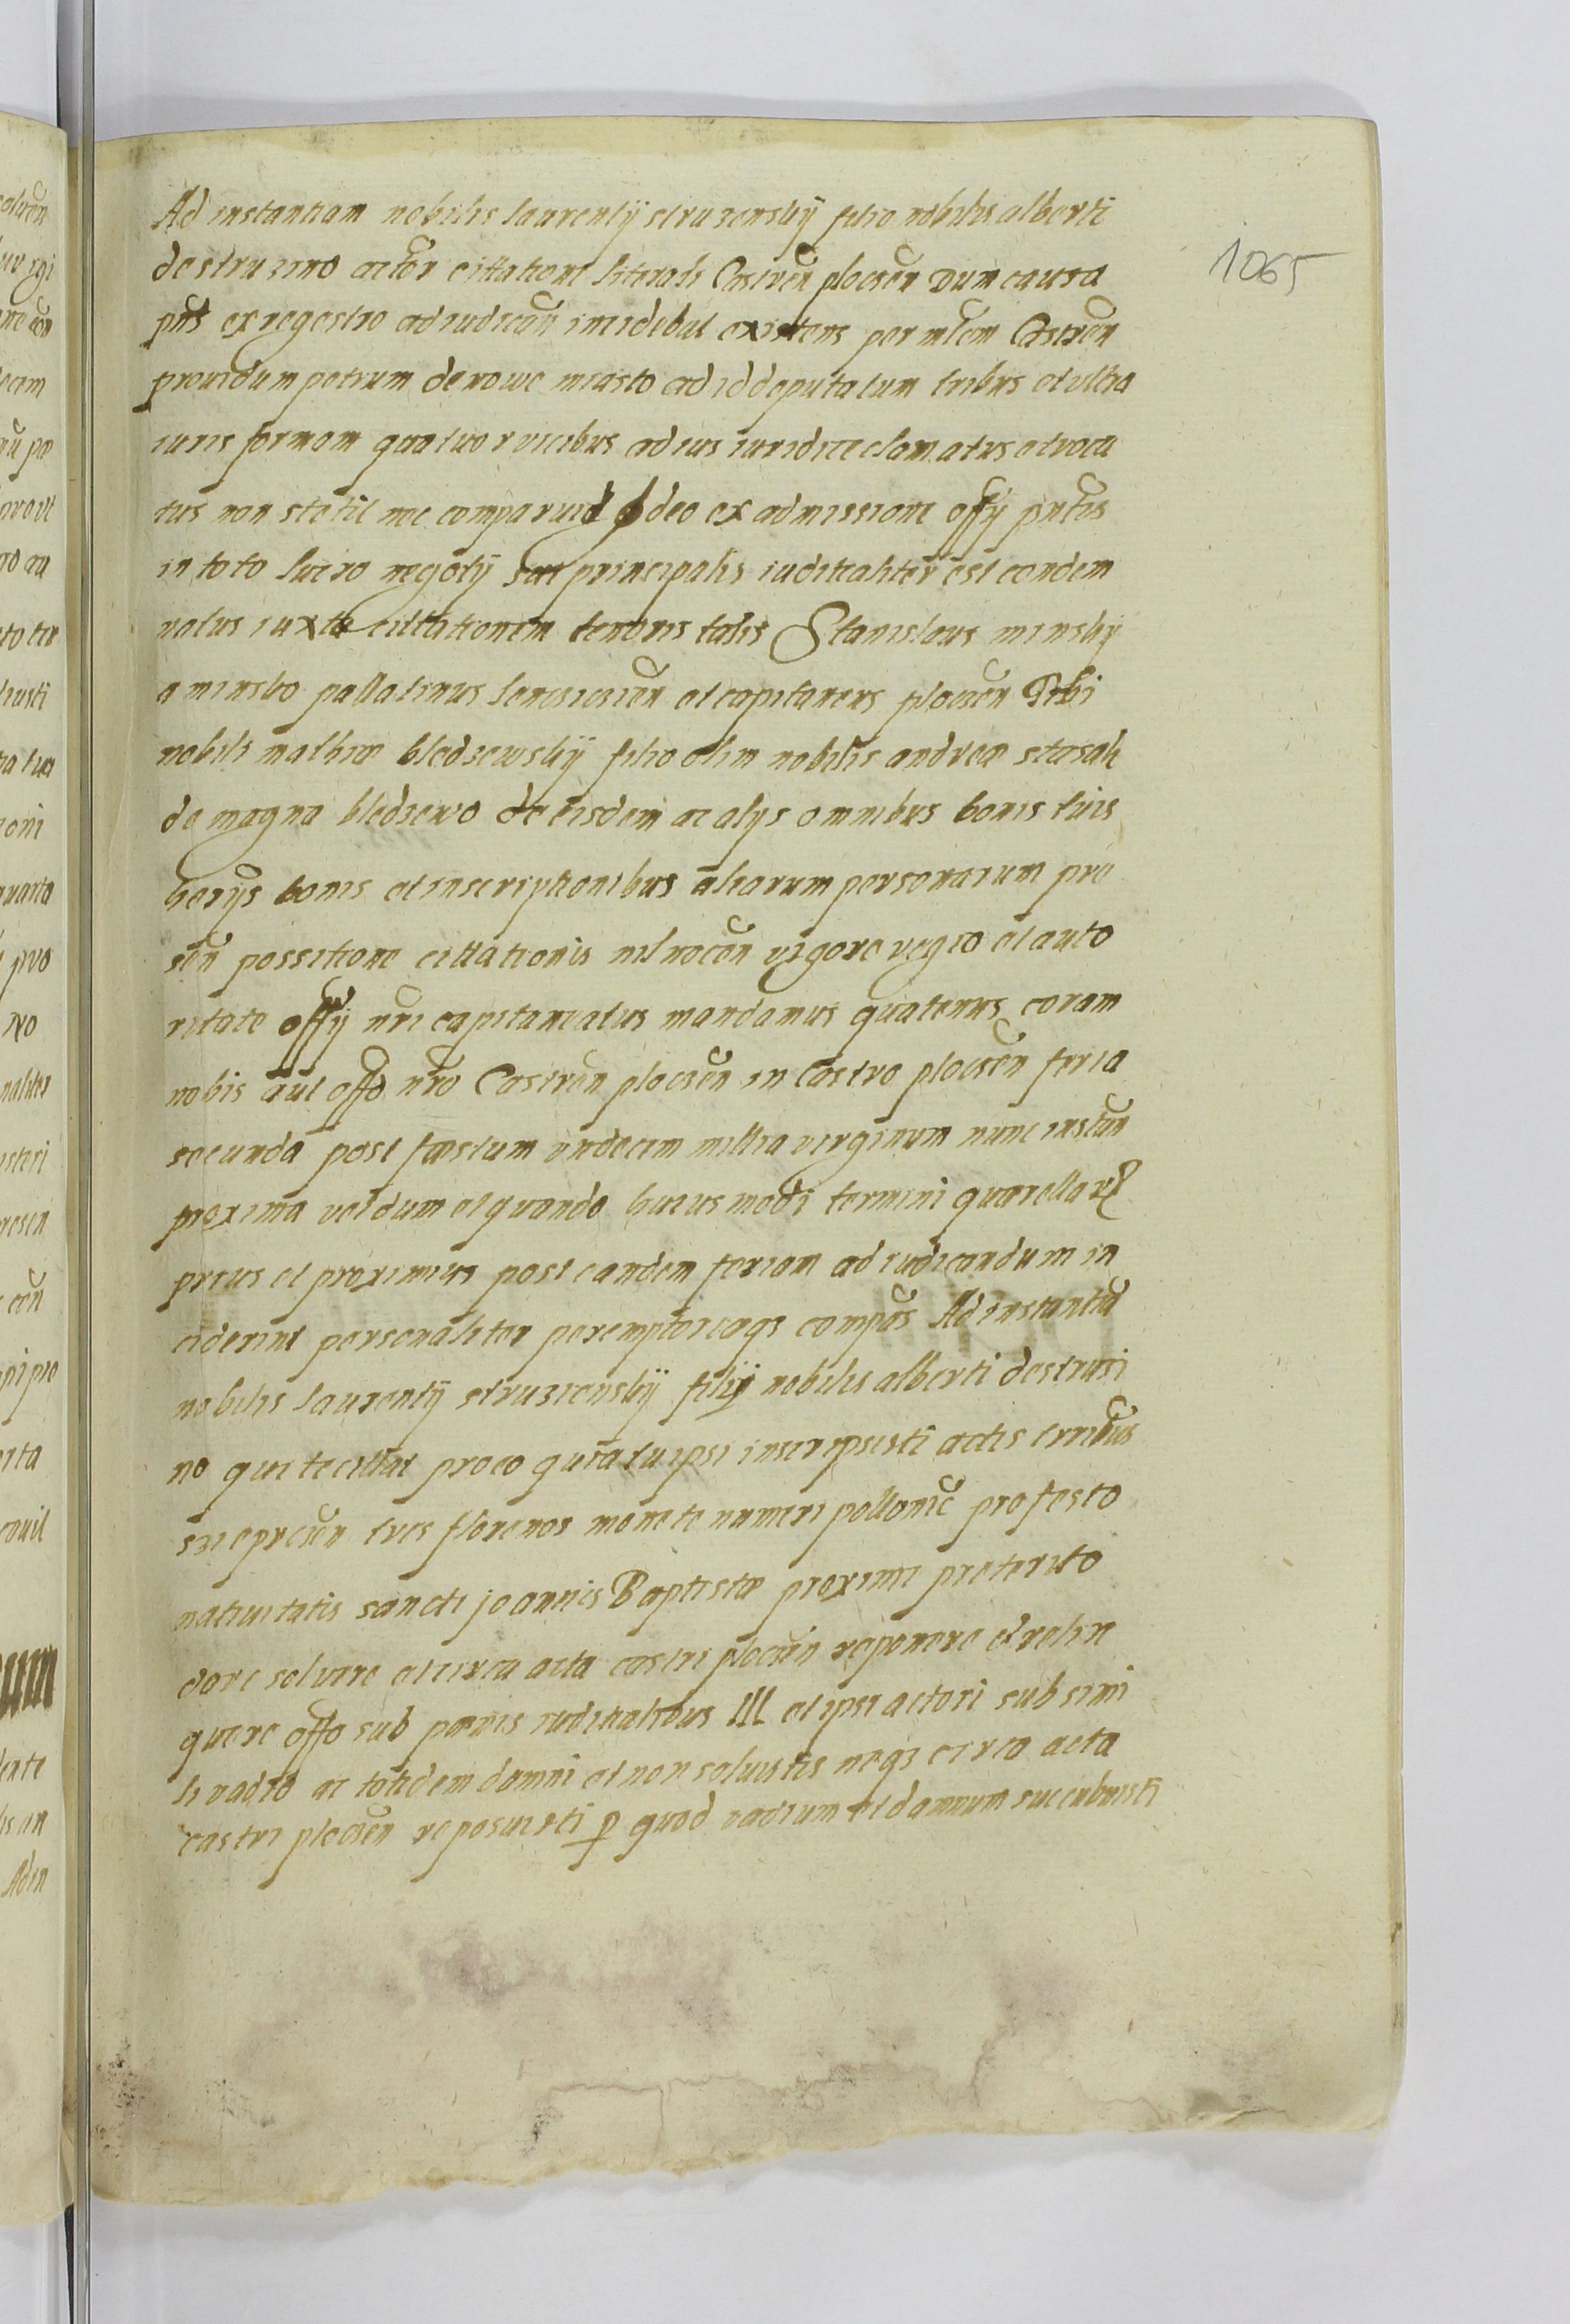 Ad instantiam nobilis laurentÿ struzenskÿ filio nobilis alberti
1065
de struzino actor̃ cittatione literali Castren̄ plocen̄ Dum causa
pn̄s ex regestro ad iudican̄ incidebat existens per mlēm Castren̄
prouidum petrum de nowe miasto ad id deputatum tribus et ultra
iuris formam quatuor vicibus ad ius iuridice clamatus et voca
tus non stetit nec comparuid Ideo ex admissione offÿ pn̄tis
in toto lucro negotÿ sui principalis iuditialiter est condem
natus iuxta cittationem tenoris talis Stanislaus minskÿ
a minsko pallatinus lencicien̄ et capitaneus plocen̄ Tibi
nobili mathiæ bledzewskÿ filio olim nobilis andreæ stasak
de magna bledzewo de eisdem ac alÿs omnibus bonis tuis
herÿs bonis et inscriptionibus aliarum personarum pre
sen̄ possitione cittationis nil nocen̄ vigore regio et auto
ritate offÿ nr̄i capitaneatus mandamus quatenus coram
nobis aut offo nr̄o Castren̄ plocen̄ in Castro plocen̄ feria
secunda post fæstum vndecim millia virginum nunc instan̄
proxima vel dum et quando huius modi termini quærellar
prius et proximius post eandem feriam ad iudicandum in
ciderint personaliter peremptorieqꝫ compās Ad instantiā
nobilis laurentÿ struzienskÿ filÿ nobilis alberti de struzi
no qui te cittat pro eo quia tu ipsi inscripsisti actis trribus
szieprcien̄ tres florenos monete numeri pollonic̄ pro festo
natiuitatis sancti joannis Baptistæ proxime preterito
dare soluere et circa acta castri plocen̄ reponere et relin
quere offo sub pænis iuditialibus III et ipsi actori sub simi
li vadio ac totidem damni et non soluistis neqꝫ circa acta
castri plocen̄ reposuisti ꝑ quod vadium et damnum succubuisti